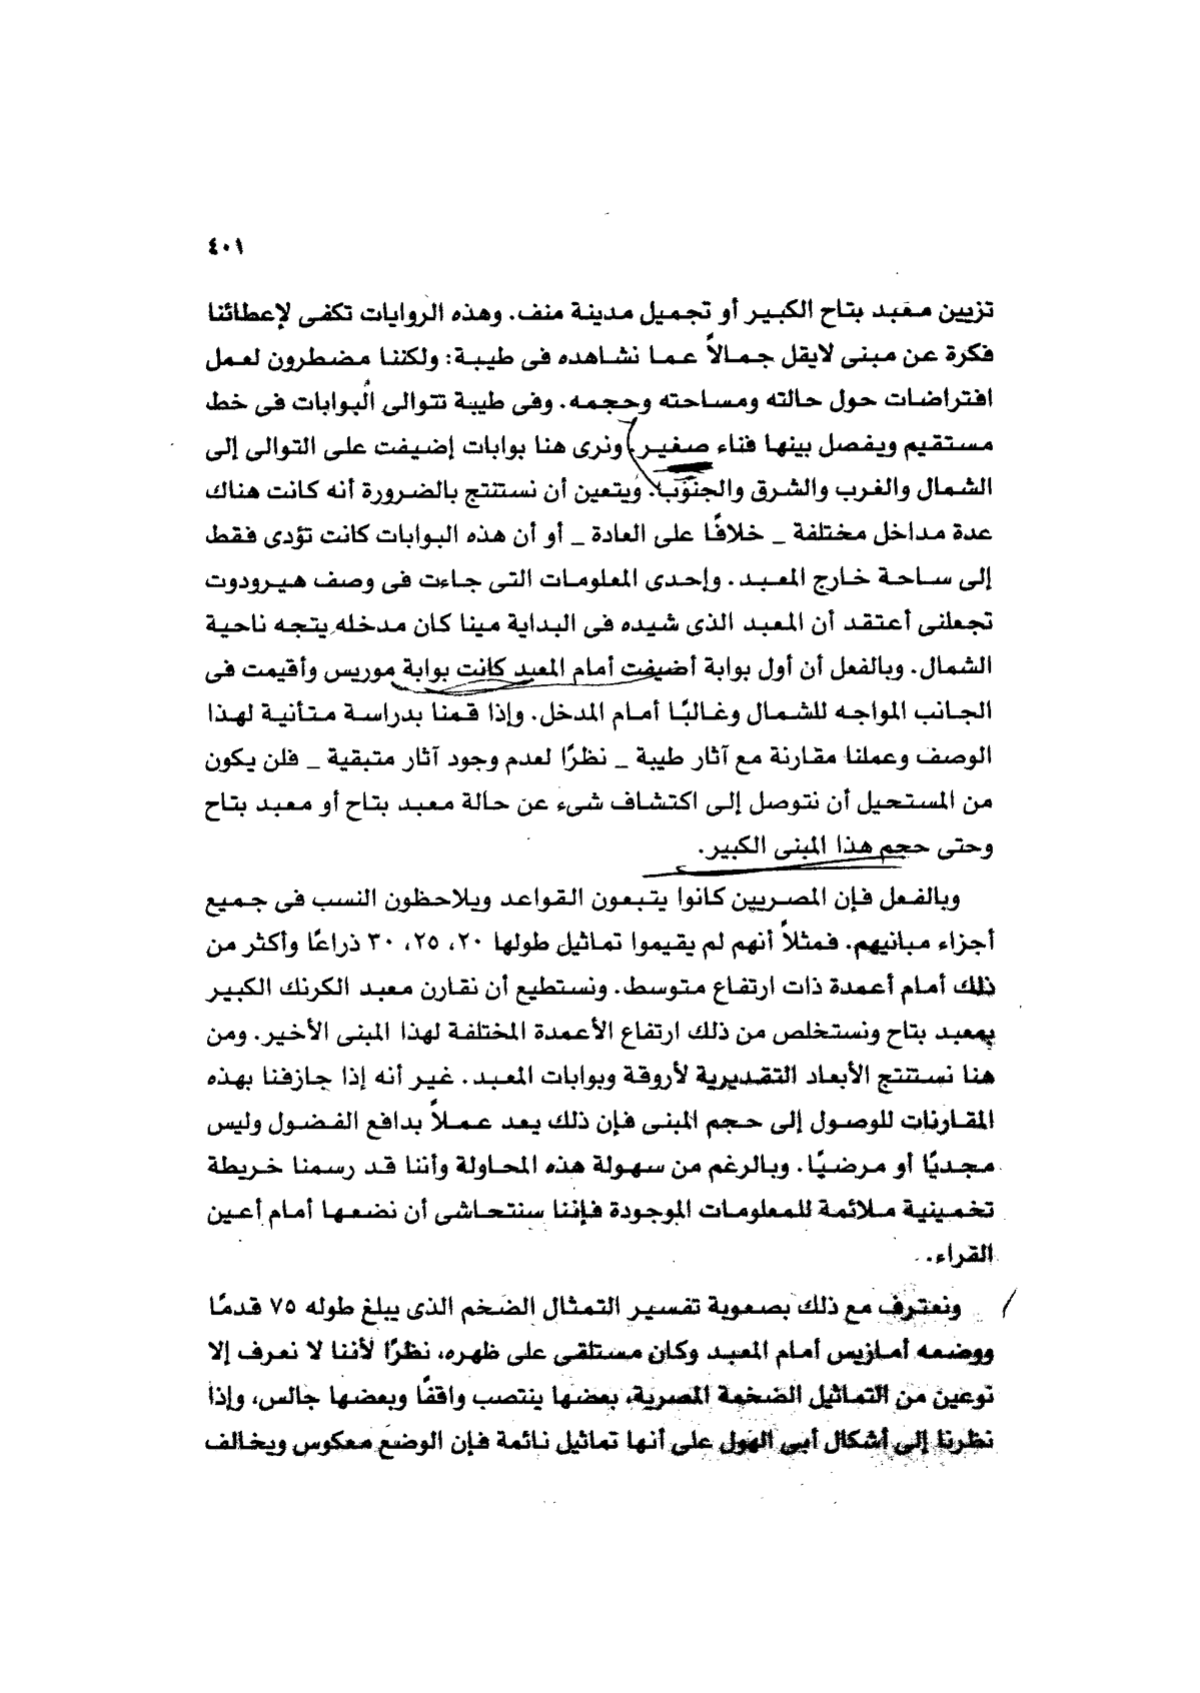 ٤٠١
تزيين معبد بتاح الكبير أو تجميل مدينة منف. وهذه الروايات تكفى لإعطائنا
فكرة عن مبنى لايقل جمالاً عما نشاهده فى طيبة: ولكننا مضطرون لعمل
افتراضات حول حالته ومساحته وحجمه. وفى طيبة تتوالى البوابات فى خط
مستقيم ويفصل بينها فناء صغير، ونرى هنا بوابات إضيفت على التوالى إلى
الشمال والغرب والشرق والجنوب. ويتعين أن نستنتج بالضرورة أنه كانت هناك
عدة مداخل مختلفة _ خلافًا على العادة _ أو أن هذه البوابات كانت تؤدى فقط
إلى ساحة خارج المعبد. وإحدى المعلومات التى جاءت فى وصف هيرودوت
تجعلنى أعتقد أن المعبد الذى شيده فى البداية مينا كان مدخله يتجه ناحية
الشمال. وبالفعل أن أول بوابة أضيفت أمام المعبد كانت بوابة موريس وأقيمت فى
الجانب المواجه للشمال وغالبًا أمام المدخل. وإذا قمنا بدراسة متأنية لهذا
الوصف وعملنا مقارنة مع آثار طيبة _ نظرًا لعدم وجود آثار متبقية _ فلن يكون
من المستحيل أن نتوصل إلى اكتشاف شىء عن حالة معبد بتاح أو معبد بتاح
وحتى حجم هذا المبنى الكبير.
وبالفعل فإن المصريين كانوا يتبعون القواعد ويلاحظون النسب فى جميع
أجزاء مبانيهم. فمثلاً أنهم لم يقيموا تماثيل طولها ٢٠، ٢٥، ٣٠ ذراعًا وأكثر من
ذلك أمام أعمدة ذات ارتفاع متوسط. ونستطيع أن نقارن معبد الكرنك الكبير
بمعبد بتاح ونستخلص من ذلك ارتفاع الأعمدة المختلفة لهذا المبنى الأخير. ومن
هنا نستنتج الأبعاد التقديرية لأروقة وبوابات المعبد. غير أنه إذا جازفنا بهذه
المقارنات للوصول إلى حجم المبنى فإن ذلك يعد عملاً بدافع الفضول وليس
مجديًا أو مرضيًا. وبالرغم من سهولة هذه المحاولة وأننا قد رسمنا خريطة
تخمينية ملائمة للمعلومات الموجودة فإننا سنتحاشى أن نضعها أمام أعين
القراء.
ونعترف مع ذلك بصعوبة تفسير التمثال الضخم الذى يبلغ طوله ٧٥ قدمًا
ووضعه أمازيس أمام المعبد وكان مستلقى على ظهره، نظرًا لأننا لا نعرف إلا
نوعين من التماثيل الضخمة المصرية، بعضها ينتصب واقفًا وبعضها جالس، وإذا
نظرنا إلى أشكال أبى الهول على أنها تماثيل نائمة فإن الوضع معكوس ويخالف